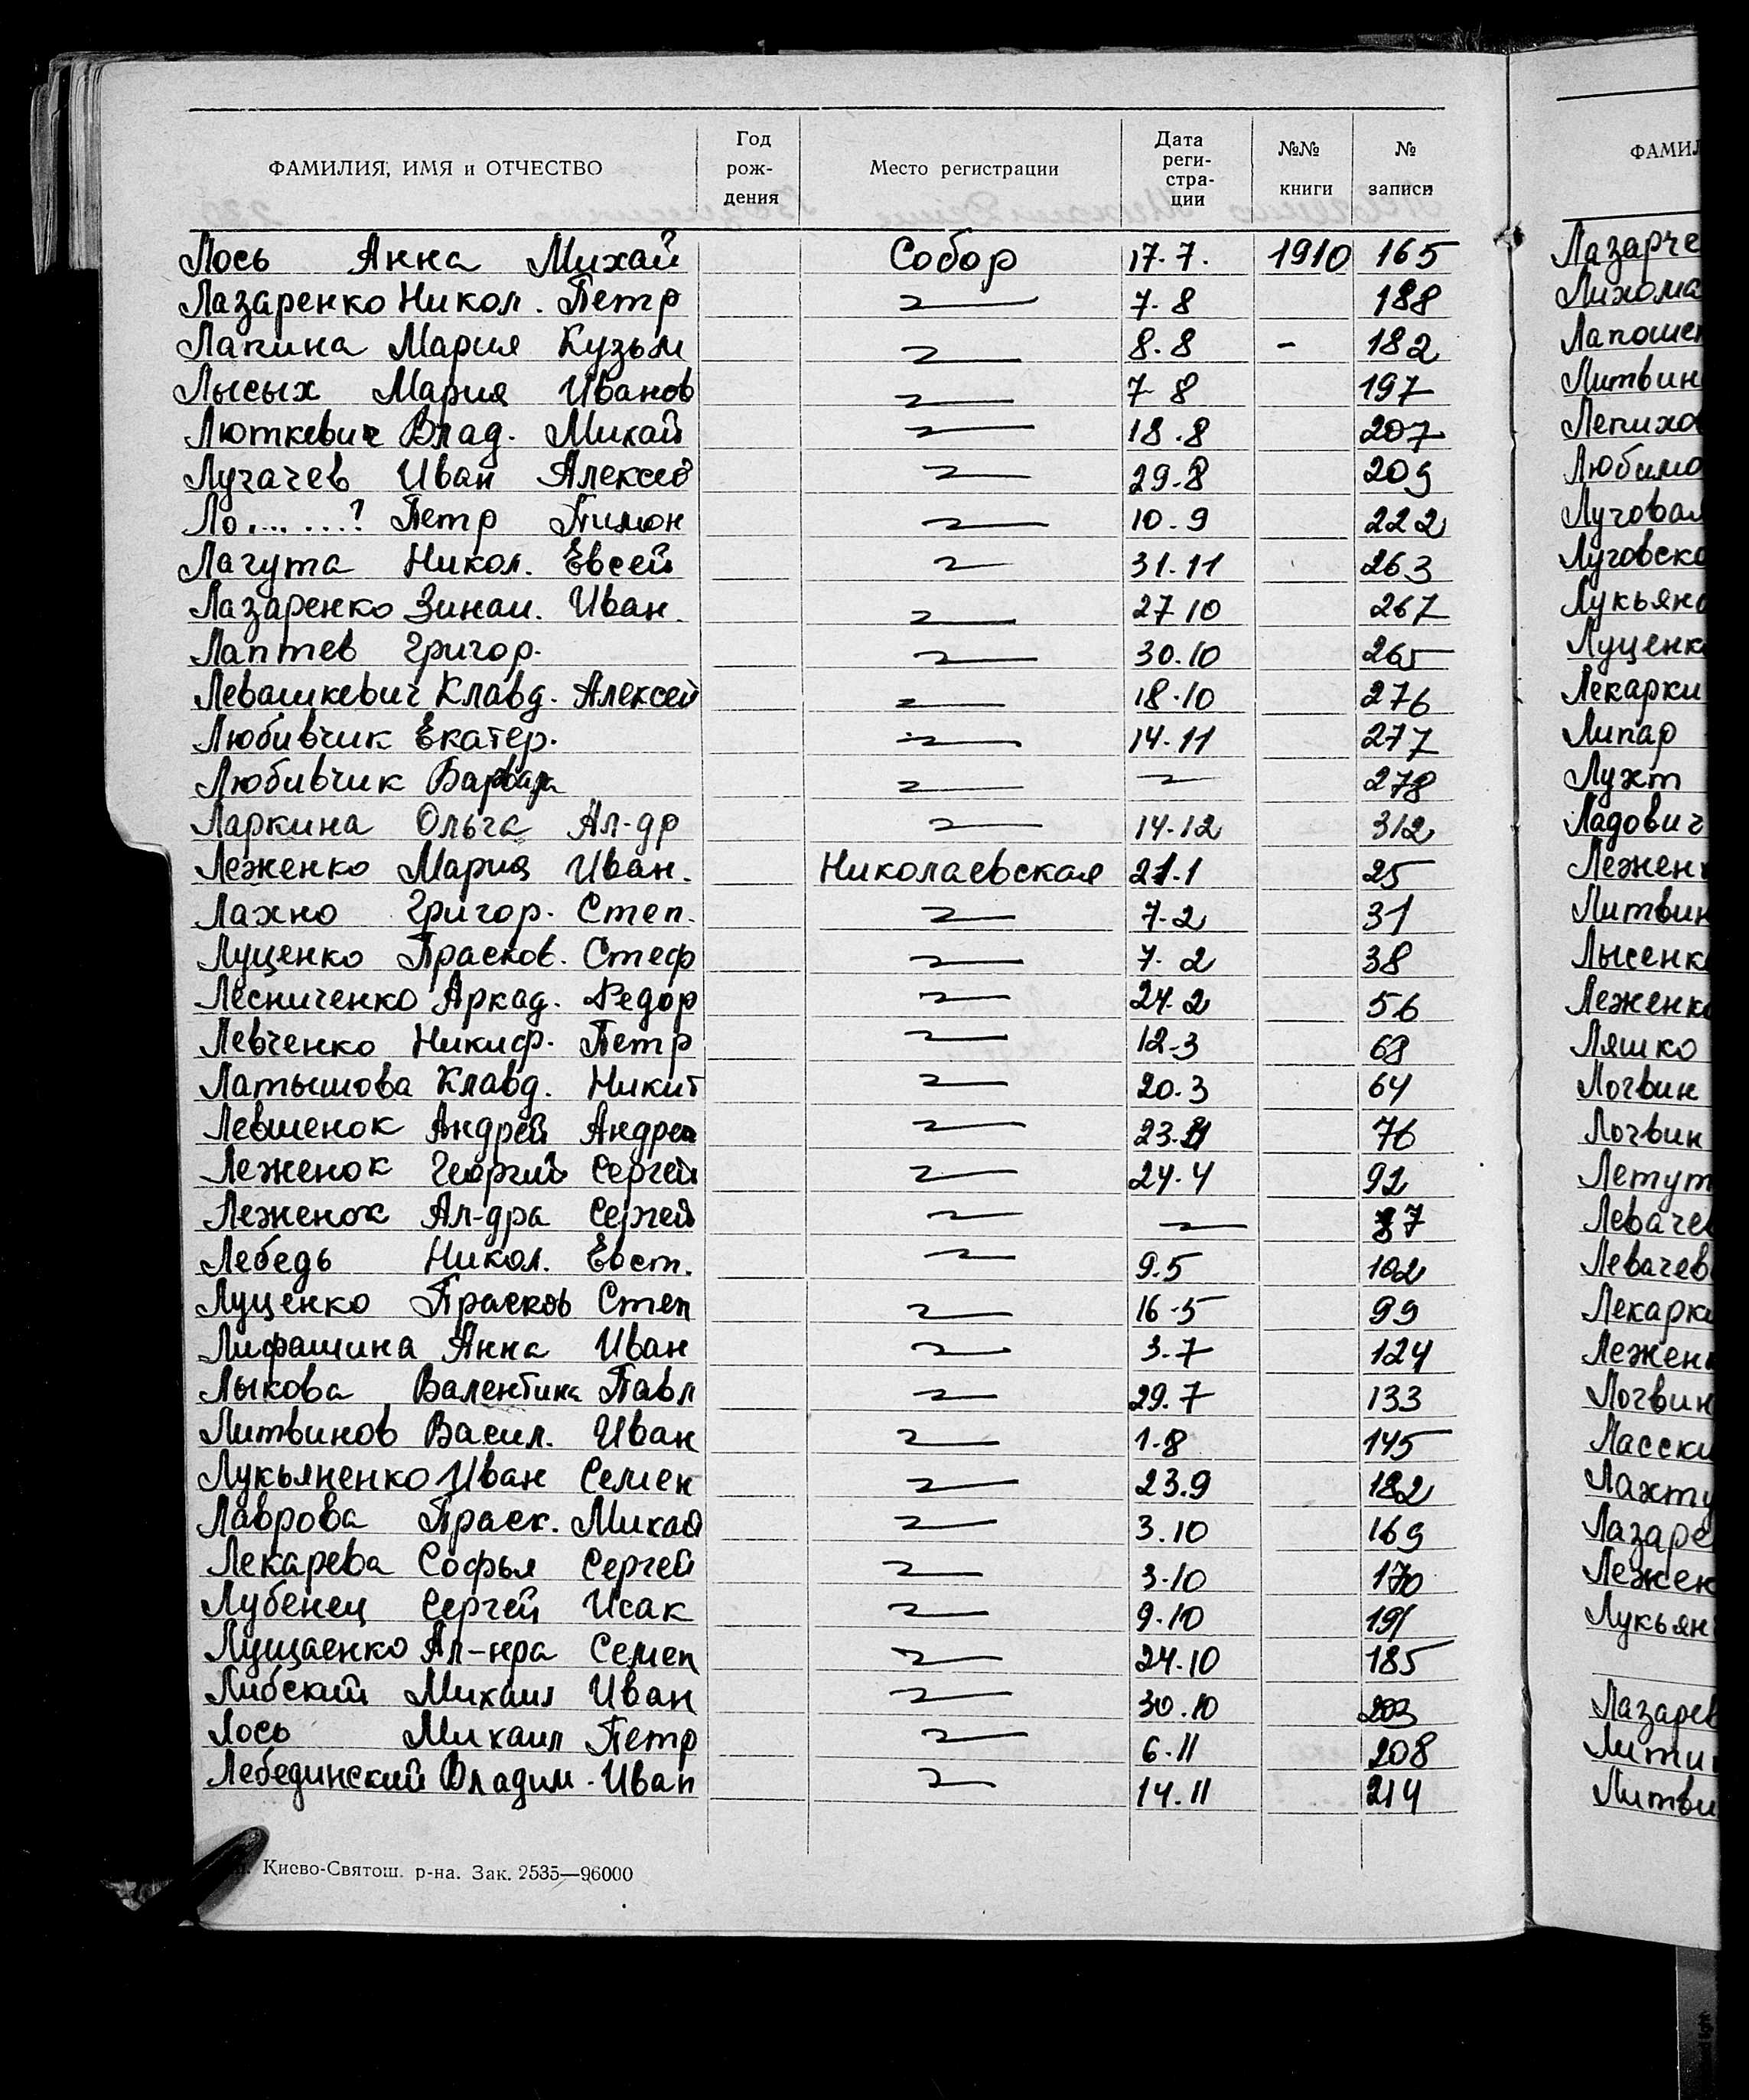 ФАМИЛИЯ, ИМЯ и ОТЧЕСТВО Год рождения Место регистрации Дата регистрации №№ книги № записи
Лось Анна Михай Собор 17.7. 1910 165
Лазаренко Никол. Петр 7.8 188
Лапина Мария Кузьм 8.8 - 182
Лысых Мария Иванов 7 8 197
Люткевич Влад. Михай 18.8 207
Лугачев Иван Алексей 29.8 209
Ло.......? Петр Пимон 10.9 222
Лагута Никол. Евсей 31.11 263
Лазаренко Зинаи. Иван. 27 10 267
Лаптев Григор. 30.10 265
Левашкевич Клавд. Алексей 18.10 276
Любивчик Екатер. 14.11 277
Любивчик Варвара 278
Ларкина Ольга Ал-др 14.12 312
Леженко Мария Иван. Николаевская 21.1 25
Лахно Григор. Степ. 7.2 31
Луценко Прасков. Стеф 7.2 38
Лесниченко Аркад. Федор 24.2 56
Левченко Никиф. Петр 12.3 68
Латышова Клавд. Никит 20.3 64
Левшенок Андрей Андрей 76
Леженок Георгий Сергей 24.4 92
Леженок Ал-дра Сергей
Лебедь Никол. Евст. 9.5 102
Луценко Прасков Степ 16.5 99
Лифашина Анна Иван 3.7 124
Лыкова Валентина Павл 29.7 133
Литвинов Васил. Иван 1.8 145
Лукьяненко Иван Семен 23.9 182
Лаврова Праск. Михай 3.10 169
Лекарева Софья Сергей 3.10 170
Лубенец Сергей Исак 9.10 191
Лущаенко Ал-нра Семен 24.10 185
Либский Михаил Иван 30.10 203
Лось Михаил Петр 6.11 208
Лебединский Владим. Иван 14.11 214
Киево-Святош. р-на. Зак. 2535—96000
ФАМИЛ
Лазарче
Лихома
Лапошен
Литвин
Лепихов
Любимо
Луговая
Луговско
Лукьяно
Луценк
Лекарки
Липар
Лухт
Ладович
Лежен
Литвин
Лысенк
Леженко
Ляшко
Логвин
Логвин
Летут
Левачев
Левачев
Лекарк
Лежен
Логвин
Ласски
Лахту
Лазаре
Лежен
Лукьян
Лазарев
Лити
Литви